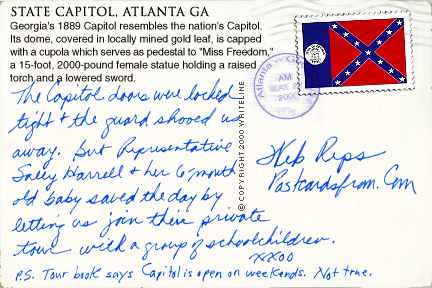 STATE CAPITOL, ATLANTA GA
Georgia's 1889 Capitol resembles the nation's Capitol.
Its dome, covered in locally mined gold leaf, is capped
with a cupola which serves as pedestal to "Miss Freedom,"
a 15-foot, 2000-pound female statue holding a raised
torch and a lowered sword.
Atlanta GA
AM
2000
The Capitol doors were locked
tight & the guard shooed us
away. But Representative
Sally Harrell & her 6-month
old baby saved the day by
letting us join their private
tour with a group of schoolchildren.
XXOO
P.S. Tour book says Capitol is open on weekends. Not true.
© COPYRIGHT 2000 WRITELINE
Web Peeps
Postcardsfrom.Com